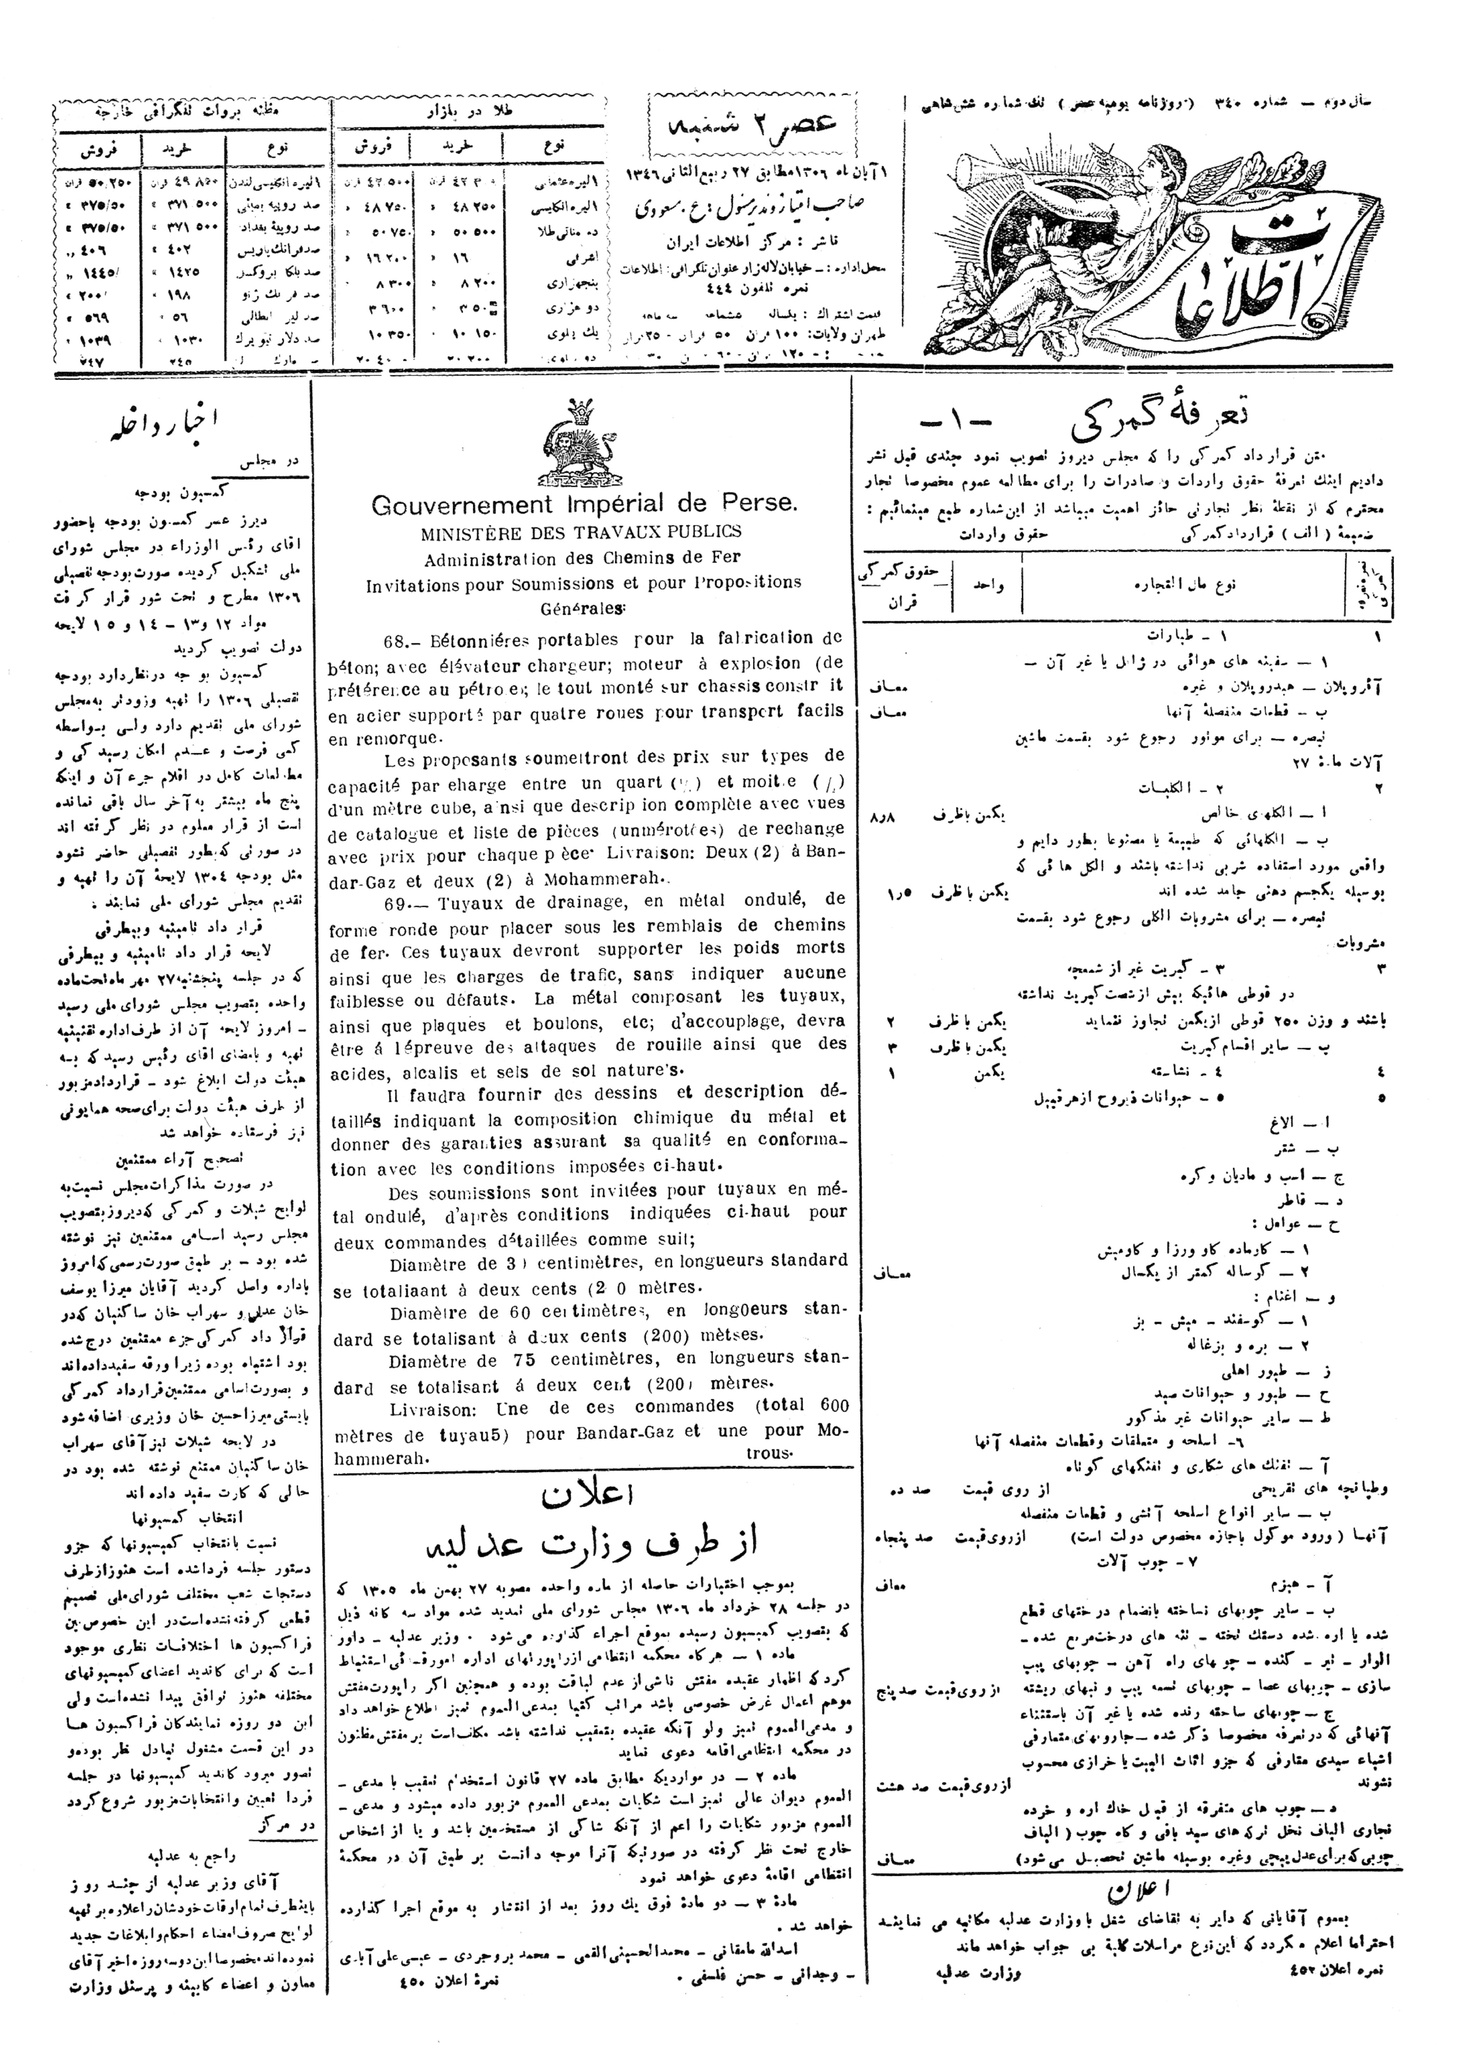 سال دوم — شماره ۳۴۰ (روزنامه یومیه عصر) تك شماره شش شاهی
اطلاعات
عصر ۲ شنبه
۱ آبان ماه ۱۳۰۶ مطابق ۲۷ ربیع الثانی ۱۳۴۶
صاحب امتیاز و مدیر مسئول : ع . مسعودی
ناشر : مرکز اطلاعات ایران
محل اداره : — خیابان لاله زار عنوان تلگرافی : اطلاعات
نمره تلفون ٤٤٤
قیمت اشتراك : یکساله ششماهه سه ماهه
طهران و ولایات : ۱۰۰ قران ۵۰ قران — ۳۵ قران
طلا در بازار
نوع خرید فروش
۱ لیره عثمانی ٤۲٣٠٠ قران ٤٢٥٠٠ قران
۱ لیره انگلیسی ٤٨٢٥٠ » ٤٨٧٥٠ »
ده مناتی طلا ٥٠٥٠٠ » ٥٠٧٥٠ »
اشرفی ١٦ » ١٦٢٠٠ »
پنجهزاری ٨٢٠٠ » ٨٣٠٠
دو هزاری ٣٥٠ ٣٦٠٠ »
یك پهلوی ١٠١٥٠ » ١٠٣٥٠
٢٠٢٠٠ ٢٠٤٠
مظنه بروات تلگرافی خارجه
نوع خرید فروش
۱ لیره انگلیسی لندن ٤٩٨٥٠ قران ٥٠٢٥٠ قران
صد روپیه بمبئی ٣٧١٥٠٠ » ٣٧٥/٥٠ »
صد روپیه بغداد ٣٧١٥٠٠ » ٣٧٥/٥٠ »
صد فرانك پاریس ٤٠٢ » ٤٠٦ »
صد بلگا بروکسل ١٤٢٥ » ١٤٤٥ »
صد فرانك ژنو ١٩٨ » ٢٠٠ »
صد لیر ایطالی ٥٦ » ٥٦٩ »
صد دلار نیویرك ١٠٣٠ » ١٠٣٩ »
مارك ٢٤٥ ٢٤٧
تعرفهٔ گمرکی —۱—
متن قرار داد گمرکی را که مجلس دیروز تصویب نمود چندی قبل نشر
دادیم اینك تعرفهٔ حقوق واردات و صادرات را برای مطالعه عموم مخصوصا تجار
محترم که از نقطهٔ نظر تجارتی حائز اهمیت میباشد از این شماره طبع مینمائیم :
ضمیمهٔ (الف) قرارداد گمرکی حقوق واردات
نمره تعرفه گمرکی نوع مال التجاره واحد حقوق گمرکی قران
۱ ۱ - طیارات
۱ — سفینه های هوائی در ژائل یا غیر آن —
آئروپلان — هیدروپلان و غیره معاف
ب — قطعات منفصلهٔ آنها معاف
تبصره — برای موتور رجوع شود بقسمت ماشین
آلات مادهٔ ۲۷
۲ ۲ - الکلیات
ا — الکلهای خالص یکمن باظرف ۸ر۸
ب — الکلهائی که طبیعة یا مصنوعا بطور دایم و
واقعی مورد استفاده شربی نداشته باشند و الکل هائی که
بوسیله یکجسم دهنی جامد شده اند یکمن با ظرف ۱ر۵
تبصره — برای مشروبات الکلی رجوع شود بقسمت
مشروبات
۳ ۳ - کبریت غیر از شمعچه
در قوطی هائیکه بیش از شصت کبریت نداشته
باشند و وزن ۲۵۰ قوطی از یکمن تجاوز ننماید یکمن با ظرف ۲
ب — سایر اقسام کبریت یکمن با ظرف ۳
٤ ٤ - نشاسته یکمن ۱
٥ ٥ - حیوانات ذیروح از هر قبیل
ا — الاغ
ب — شتر
ج — اسب و مادیان و کره
د — قاطر
ح — عوامل :
۱ — گاوماده گاو ورزا و گاومیش
۲ — گوساله کمتر از یکسال معاف
و — اغنام :
۱ — گوسفند - میش - بز
۲ — بره و بزغاله
ز — طیور اهلی
ح — طیور و حیوانات صید
ط — سایر حیوانات غیر مذکور
٦- اسلحه و متعلقات و قطعات منفصله آنها
آ — تفنك های شکاری و تفنگهای کوتاه
و طپانچه های تفریحی از روی قیمت صد ده
ب — سایر انواع اسلحه آتشی و قطعات منفصله
آنها (ورود موکول باجازه مخصوص دولت است) از روی قیمت صد پنجاه
۷ - چوب آلات
آ — هیزم معاف
ب — سایر چوبهای نساخته بانضمام درختهای قطع
شده یا اره شده دستك تخته — تنه های درخت مربع شده —
الوار - تیر - کنده — چوبهای راه آهن — چوبهای پیپ
سازی - چوبهای عصا - چوبهای تسمه پیپ و نیهای ریشته از روی قیمت صد پنج
ج — چوبهای ساخته رنده شده یا غیر آن باستثناء
آنهائی که در تعرفه مخصوصا ذکر شده — جاروبهای متعارفی
اشیاء سبدی متعارفی که جزو اثاث البیت یا خرازی محسوب
نشوند از روی قیمت صد هشت
د — چوب های متفرقه از قبیل خاك اره و خرده
نجاری الیاف نخل ترکه های سبد بافی و کاه چوب (الیاف
چوبی که برای عدل پیچی وغیره بوسیله ماشین تحصیل می شود) معاف
اعلان
بعموم آقایانی که دایر به تقاضای شغل با وزارت عدلیه مکاتبه می نمایند
احتراما اعلام میگردد که این نوع مراسلات کلیة بی جواب خواهد ماند
نمره اعلان ٤٥٢ وزارت عدلیه
Gouvernement Impérial de Perse.
MINISTÈRE DES TRAVAUX PUBLICS
Administration des Chemins de Fer
Invitations pour Soumissions et pour Propositions
Générales:
68.— Bétonniéres portables pour la falrication de
béton; avec élévateur chargeur; moteur à explosion (de
prétérence au pétro e; le tout monté sur chassis constr it
en acier supporté par quatre roues pour transport facils
en remorque.
Les proposants soumettront des prix sur types de
capacité par eharge entre un quart (¼) et moit.e (½)
d'un mètre cube, ainsi que descrip ion complète avec vues
de catalogue et liste de pièces (unmérotées) de rechange
avec prix pour chaque p èce· Livraison: Deux (2) à Ban-
dar-Gaz et deux (2) à Mohammerah..
69.— Tuyaux de drainage, en métal ondulé, de
forme ronde pour placer sous les remblais de chemins
de fer. Ces tuyaux devront supporter les poids morts
ainsi que les charges de trafic, sans indiquer aucune
faiblesse ou défauts. La métal composant les tuyaux,
ainsi que plaques et boulons, etc; d'accouplage, devra
être á l'épreuve des attaques de rouille ainsi que des
acides, alcalis et sels de sol nature's.
Il faudra fournir des dessins et description dé-
taillés indiquant la composition chimique du métal et
donner des garanties assurant sa qualité en conforma-
tion avec les conditions imposées ci-haut.
Des soumissions sont invitées pour tuyaux en mé-
tal ondulé, d'après conditions indiquées ci-haut pour
deux commandes détaillées comme suit;
Diamètre de 3) centimètres, en longueurs standard
se totaliaant à deux cents (2 0 mètres.
Diamètre de 60 certimètres, en long0eurs stan-
dard se totalisant à deux cents (200) mètses.
Diamètre de 75 centimètres, en longueurs stan-
dard se totalisant á deux cent (200) mètres.
Livraison: Une de ces commandes (total 600
mètres de tuyau5) pour Bandar-Gaz et une pour Mo-
hammerah. trous·
اعلان
از طرف وزارت عدلیه
بموجب اختیارات حاصله از ماده واحده مصوبه ۲۷ بهمن ماه ۱۳۰۵ که
در جلسه ۲۸ خرداد ماه ۱۳۰٦ مجلس شورای ملی تمدید شده مواد سه گانه ذیل
که بتصویب کمیسیون رسیده بموقع اجراء گذارده می شود . وزیر عدلیه — داور
ماده ۱ — هرگاه محکمه انتظامی از راپورتهای اداره امور استنباط
کرد که اظهار عقیده مفتش ناشی از عدم لیاقت بوده و همچنین اگر راپورت مفتش
موهم اعمال غرض خصوصی باشد مراتب کتبا بمدعی العموم تمیز اطلاع خواهد داد
و مدعی العموم تمیز ولو آنکه عقیده بتعقیب نداشته باشد مکلف است بر مفتش مظنون
در محکمه انتظامی اقامه دعوی نماید
ماده ۲ — در مواردیکه مطابق ماده ۲۷ قانون استخدام تعقیب با مدعی —
العموم دیوان عالی تمیز است شکایات بمدعی العموم مزبور داده میشود و مدعی —
العموم مزبور شکایات را اعم از آنکه شاکی از مستخدمین باشد و یا از اشخاص
خارج تحت نظر گرفته در صورتیکه آنرا موجه دانست بر طبق آن در محکمهٔ
انتظامی اقامهٔ دعوی خواهد نمود
مادهٔ ۳ — دو مادهٔ فوق یك روز بعد از انتشار به موقع اجرا گذارده
خواهد شد .
اسدالله مامقانی — محمد الحسینی القمی — محمد بروجردی — عیسی علی آبادی
— وجدانی — حسن فلسفی . نمرهٔ اعلان ٤٥٠
اخبار داخله
در مجلس
کمسیون بودجه
دیرز عصر کمسیون بودجه باحضور
اقای رئیس الوزراء در مجلس شورای
ملی تشکیل گردیده صورت بودجه تفصیلی
۱۳۰٦ مطرح و تحت شور قرار گرفت
مواد ۱۲ و ۱۳ — ۱٤ و ۱۵ لایحه
دولت تصویب گردید
کمسیون بو جه در نظر دارد بودجه
تفصیلی ۱۳۰٦ را تهیه و زودتر به مجلس
شورای ملی تقدیم دارد ولی بواسطه
کمی فرصت و عدم امکان رسیدگی و
مطالعات کامل در اقلام جزء آن و اینکه
پنج ماه بیشتر به آخر سال باقی نمانده
است از قرار معلوم در نظر گرفته اند
در صورتی که بطور تفصیلی حاضر نشود
مثل بودجه ۱۳۰٤ لایحهٔ آن را تهیه و
تقدیم مجلس شورای ملی نمایند .
قرار داد تامینیه و بیطرفی
لایحه قرار داد تامینیه و بیطرفی
که در جلسه پنجشنبه ۲۷ مهر ماه تحت ماده
واحده بتصویب مجلس شورای ملی رسید
— امروز لایحه آن از طرف اداره تقنینیه
تهیه و بامضای اقای رئیس رسید که به
هیئت دولت ابلاغ شود - قرارداد مزبور
از طرف هیئت دولت برای صحه همایونی
نیز فرستاده خواهد شد
تصحیح آراء ممتنعین
در صورت مذاکرات مجلس نسبت به
لوایح شیلات و گمرکی که دیروز بتصویب
مجلس رسید اسامی ممتنعین نیز نوشته
شده بود - بر طبق صورت رسمی که امروز
باداره واصل گردید آقایان میرزا یوسف
خان عدل و سهراب خان ساگنیان که در
قرار داد گمرکی جزء ممتنعین درج شده
بود اشتباه بوده زیرا ورقه سفید داده اند
و بصورت اسامی ممتنعین قرارداد گمرکی
بایستی میرزا حسین خان وزیری اضافه شود
در لایحه شیلات نیز آقای سهراب
خان ساگنیان ممتنع نوشته شده بود در
حالی که کارت سفید داده اند
انتخاب کمسیونها
نسبت بانتخاب کمیسیونها که جزو
دستور جلسه فردا شده است هنوز از طرف
دستجات شعب مختلف شورای ملی تصمیم
قطعی گرفته نشده است در این خصوص بین
فراکسیون ها اختلافات نظری موجود
است که برای کاندید اعضای کمیسیونهای
مختلفه هنوز توافق پیدا نشده است ولی
این دو روزه نمایندگان فراکسیون ها
در این قسمت مشغول تبادل نظر بوده و
تصور میرود کاندید کمیسیونها در جلسه
فردا تعیین و انتخابات مزبور شروع گردد
در مرکز
راجع به عدلیه
آقای وزیر عدلیه از چند روز
باینطرف تمام اوقات خودشان را علاوه بر تهیه
لوایح صروف امضاء احکام و ابلاغات جدید
نموده اند مخصوصا این دو سه روزه اخیر آقای
معاون و اعضاء کابینه و پرسنل وزارت